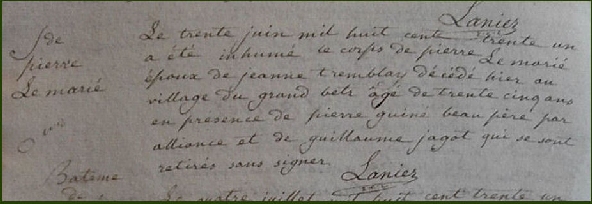 Laniez
S de
pierre
Le marié
Le trente juin mil huit cent trente un
a été inhumé le corps de pierre Le marié
époux de jeanne tremblay décédé hier au
village du grand betr âgé de trente cinq ans
en presence de pierre guiné beau péré par
alliance et de guillaume jagot qui se sont
retirés sans signer
Laniez
Bateme
de
Le quatre juillet mil huit cent trente un